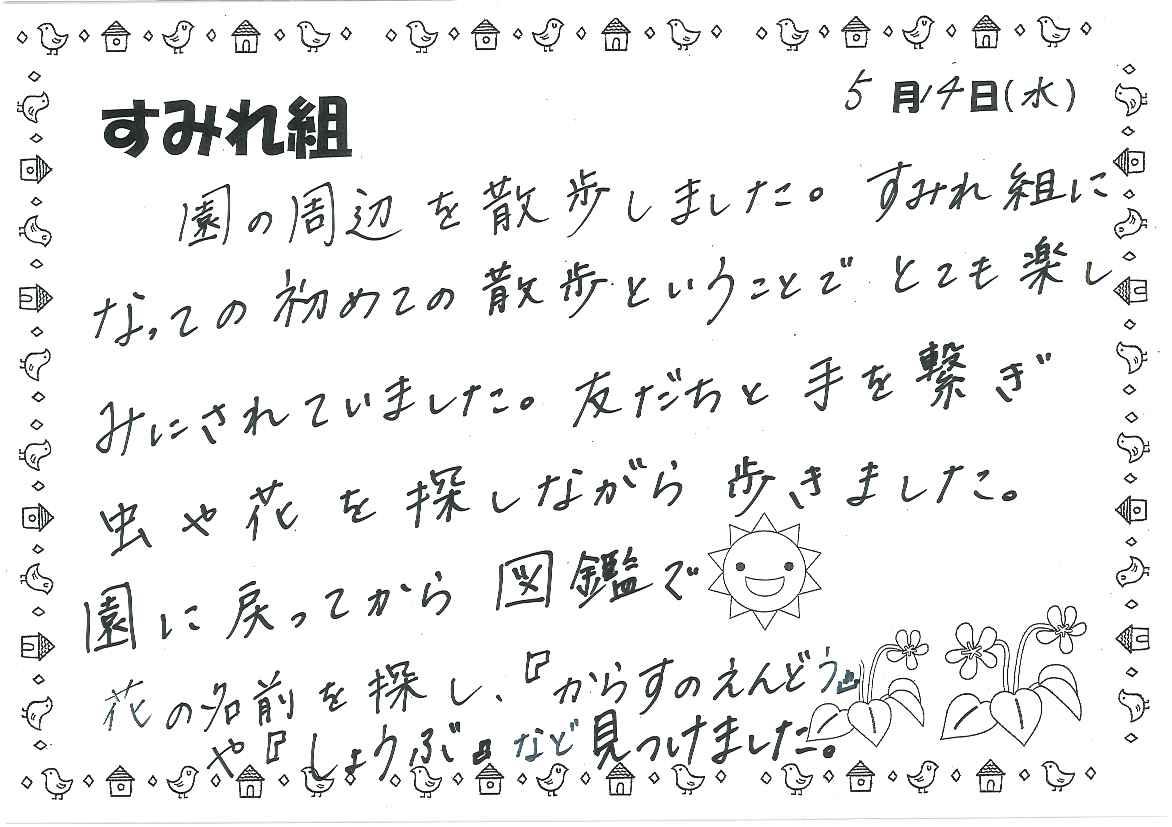 すみれ組
5月14日(水)
園の周辺を散歩しました。すみれ組に
なっての初めての散歩ということでとても楽し
みにされていました。友だちと手を繋ぎ
虫や花を探しながら歩きました。
園に戻ってから図鑑で
花の名前を探し、『からすのえんどう』
や『しょうぶ』など見つけました。